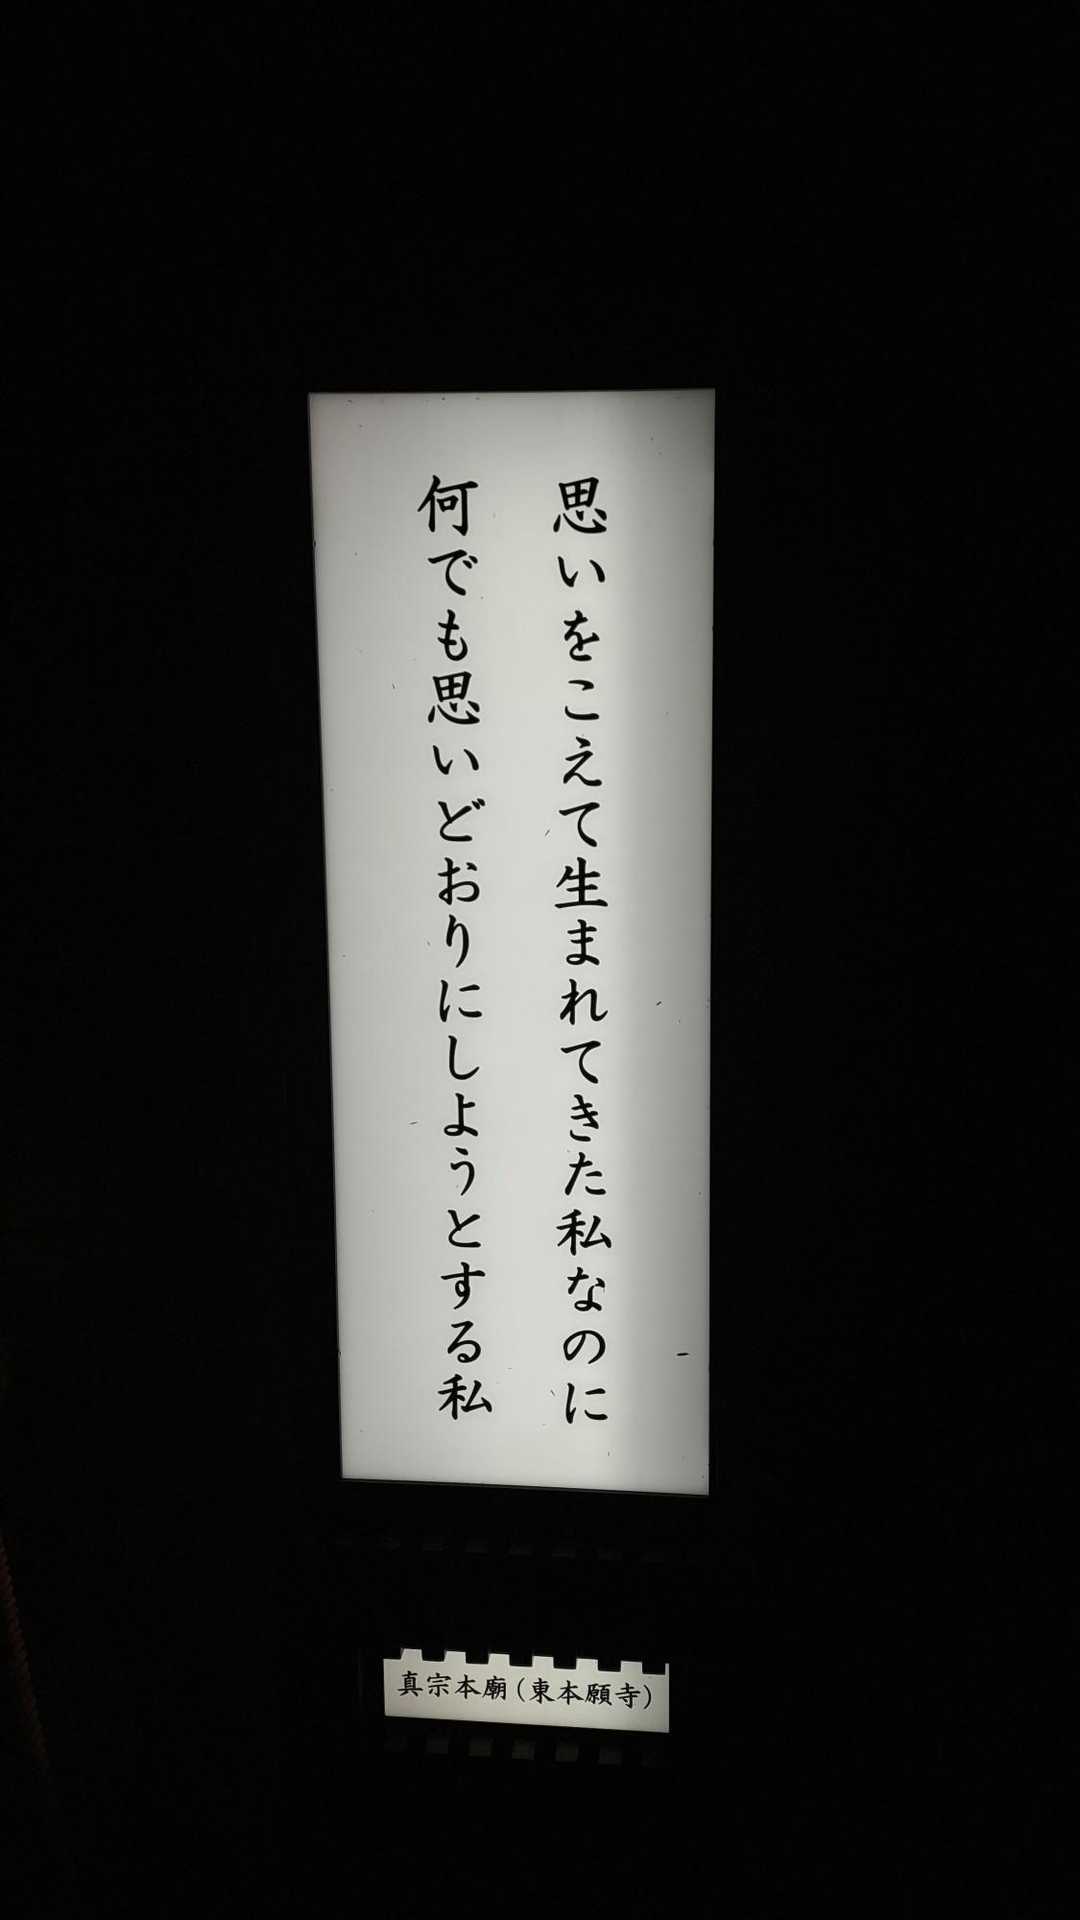 思いをこえて生まれてきた私なのに
何でも思いどおりにしようとする私
真宗本廟(東本願寺)